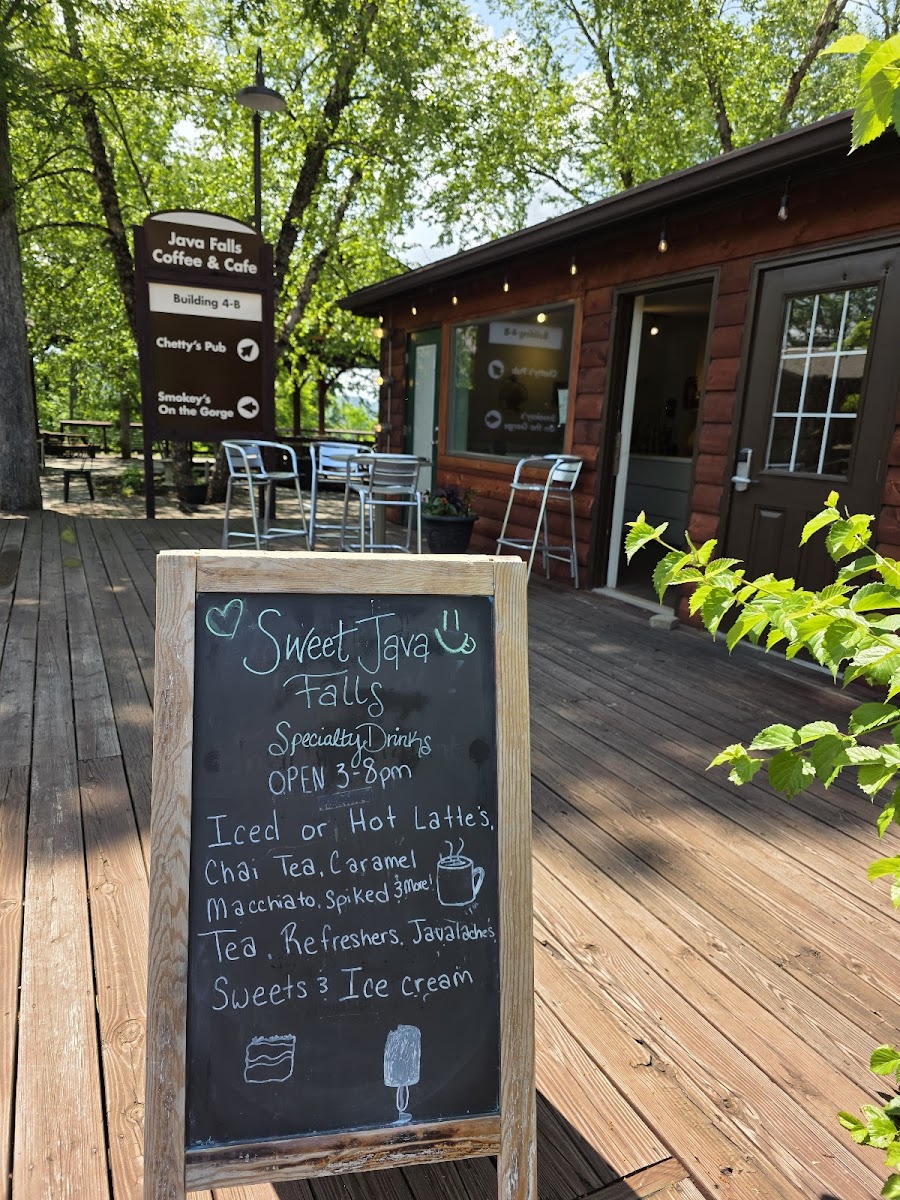 Java Falls
Coffee & Cafe
Building 4-B
Chetty's Pub
Smokey's
On the Gorge
Building 4-B
Chetty's Pub
Smokey's
On the Gorge
Sweet Java
Falls
Specialty Drinks
OPEN 3-8pm
Iced or Hot Latte's,
Chai Tea, Caramel
Macchiato, Spiked & More!
Tea, Refreshers, Javalaches,
Sweets & Ice cream